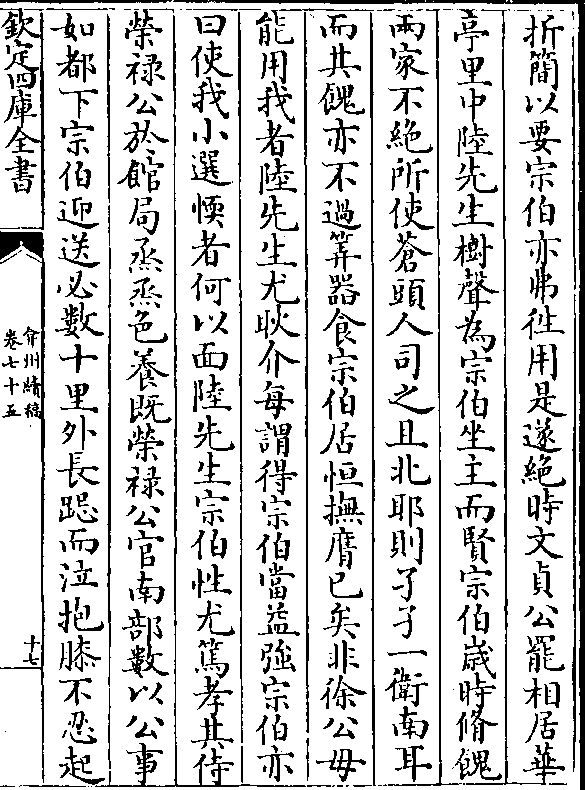 折簡以要宗伯亦弗徃用是遂絶時文貞公罷相居華
亭里中陸先生樹聲為宗伯坐主而賢宗伯嵗時脩餽
兩家不絶所使蒼頭人司之且北耶則孑孑一衛南耳
而其餽亦不過筭器食宗伯居恒撫膺已矣非徐公毋
能用我者陸先生尤耿介每謂得宗伯當益強宗伯亦
曰使我小選愞者何以面陸先生宗伯性尤篤孝其侍
榮禄公於館局烝烝色養既榮禄公官南部數以公事
如都下宗伯迎送必數十里外長跽而泣抱膝不忍起
欽定四庫全書
弇州續稿
卷七十五
十七